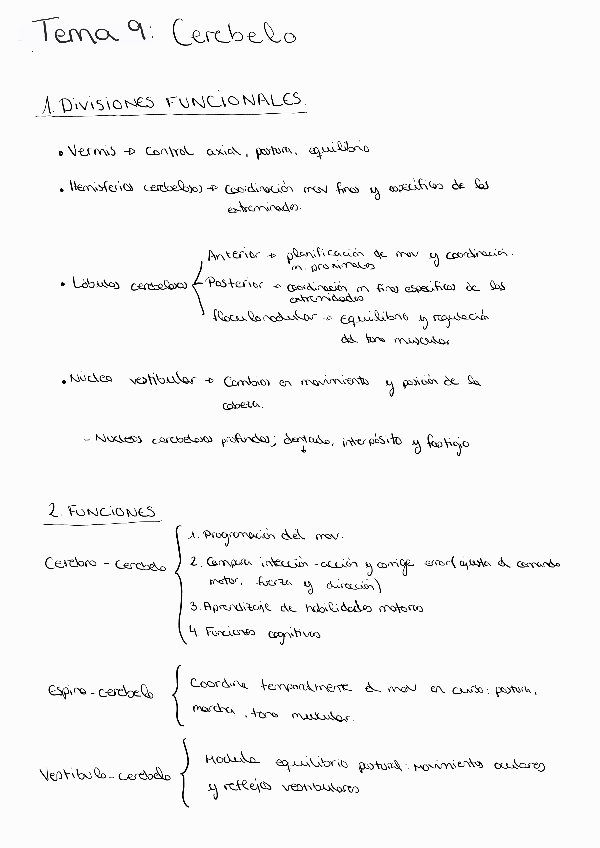 Tema 9: Cerebelo
1. DIVISIONES FUNCIONALES.
• Vermis → Control axial, postura, equilibrio
• Hemisferios cerebelosos → Coordinación mov finos y específicos de las
extremidades.
Anterior → planificación de mov y coordinación.
m. proximales
• Lóbulos cerebelosos Posterior → coordinación m finos específicos de las
extremidades
floculonodular → Equilibrio y regulación
del tono muscular
• Núcleo vestibular → Cambios en movimiento y posición de la
cabeza.
- Núcleos cerebelosos profundos; dentado, interpósito y fastigio
2. FUNCIONES
1. Programación del mov.
Cerebro - cerebelo 2. Compara intención - acción y corrige error (ajusta el comando
motor, fuerza y dirección)
3. Aprendizaje de habilidades motoras
4. Funciones cognitivas
Espino - cerebelo Coordina temporalmente el mov en curso: postura,
marcha, tono muscular.
Vestíbulo - cerebelo Modula equilibrio postural: Movimiento oculares
y reflejos vestibulares